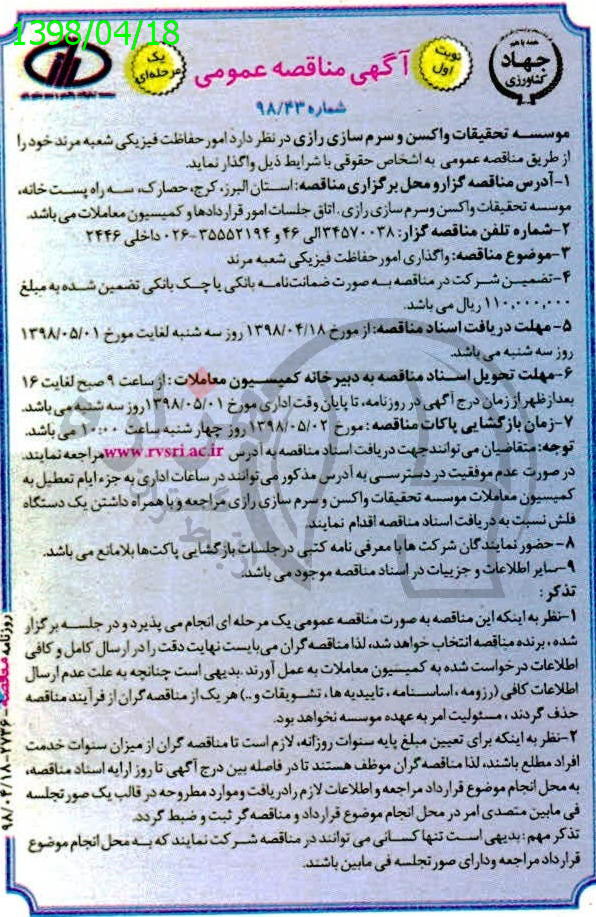 1398/04/18
همه با هم
جهاد
کشاورزی
نوبت
اول
آگهی مناقصه عمومی
یک
مرحله‌ای
شماره ۹۸/۴۳
موسسه تحقیقات واکسن و سرم سازی رازی در نظر دارد امور حفاظت فیزیکی شعبه مرند خود را
از طریق مناقصه عمومی به اشخاص حقوقی با شرایط ذیل واگذار نماید.
۱-آدرس مناقصه گزار و محل برگزاری مناقصه: استان البرز، کرج، حصارک، سه راه پست خانه،
موسسه تحقیقات واکسن وسرم سازی رازی. اتاق جلسات امور قراردادها و کمیسیون معاملات می باشد.
۲-شماره تلفن مناقصه گزار: ۳۴۵۷۰۰۳۸ الی ۴۶ و ۳۵۵۵۲۱۹۴-۰۲۶ داخلی ۲۴۴۶
۳-موضوع مناقصه: واگذاری امور حفاظت فیزیکی شعبه مرند
۴-تضمین شرکت در مناقصه به صورت ضمانت‌نامه بانکی یا چک بانکی تضمین شده به مبلغ
۱۱۰,۰۰۰,۰۰۰ ریال می باشد.
۵-مهلت دریافت اسناد مناقصه: از مورخ ۱۳۹۸/۰۴/۱۸ روز سه شنبه لغایت مورخ ۱۳۹۸/۰۵/۰۱
روز سه شنبه می باشد.
۶-مهلت تحویل اسناد مناقصه به دبیرخانه کمیسیون معاملات: از ساعت ۹ صبح لغایت ۱۶
بعدازظهر از زمان درج آگهی در روزنامه، تا پایان وقت اداری مورخ ۱۳۹۸/۰۵/۰۱ روز سه شنبه می باشد.
۷-زمان بازگشایی پاکات مناقصه: مورخ ۱۳۹۸/۰۵/۰۲ روز چهار شنبه ساعت ۱۰:۰۰ می باشد.
توجه: متقاضیان می توانند جهت دریافت اسناد مناقصه به آدرس www.rvsri.ac.ir مراجعه نمایند.
در صورت عدم موفقیت در دسترسی به آدرس مذکور می توانند در ساعات اداری به جزء ایام تعطیل به
کمیسیون معاملات موسسه تحقیقات واکسن و سرم سازی رازی مراجعه و با همراه داشتن یک دستگاه
فلش نسبت به دریافت اسناد مناقصه اقدام نمایند.
۸-حضور نمایندگان شرکت ها با معرفی نامه کتبی در جلسات بازگشایی پاکت‌ها بلامانع می باشد.
۹-سایر اطلاعات و جزییات در اسناد مناقصه موجود می باشد.
تذکر:
۱-نظر به اینکه این مناقصه به صورت مناقصه عمومی یک مرحله ای انجام می پذیرد و در جلسه برگزار
شده، برنده مناقصه انتخاب خواهد شد، لذا مناقصه گران می‌بایست نهایت دقت را در ارسال کامل و کافی
اطلاعات درخواست شده به کمیسیون معاملات به عمل آورند. بدیهی است چنانچه به علت عدم ارسال
اطلاعات کافی (رزومه، اساسنامه، تاییدیه ها، تشویقات و..) هر یک از مناقصه گران از فرآیند مناقصه
حذف گردند، مسئولیت امر به عهده موسسه نخواهد بود.
۲-نظر به اینکه برای تعیین مبلغ پایه سنوات روزانه، لازم است تا مناقصه گران از میزان سنوات خدمت
افراد مطلع باشند، لذا مناقصه گران موظف هستند تا در فاصله بین درج آگهی تا روز ارایه اسناد مناقصه،
به محل انجام موضوع قرارداد مراجعه و اطلاعات لازم را دریافت و موارد مطروحه در قالب یک صورتجلسه
فی مابین متصدی امر در محل انجام موضوع قرارداد و مناقصه گر ثبت و ضبط گردد.
تذکر مهم: بدیهی است تنها کسانی می توانند در مناقصه شرکت نمایند که به محل انجام موضوع
قرارداد مراجعه ودارای صورتجلسه فی مابین باشند.
روزنامه مناقصه - ۲۷۳۶ - ۹۸/۰۴/۱۸